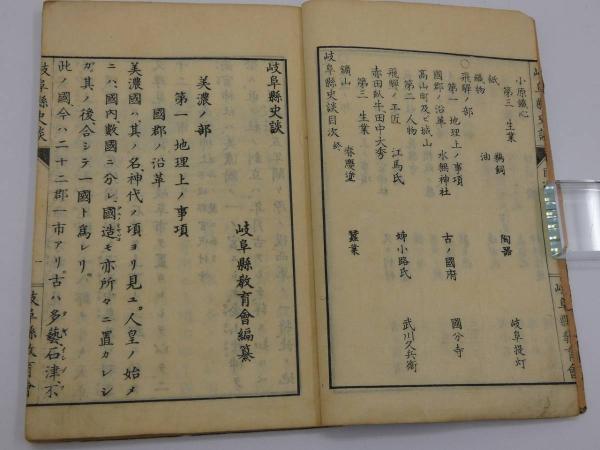 小原鐵心
第三 生業
紙 鵜飼 陶器 岐阜提灯
織物 油
〇飛驒ノ部
第一 地理上ノ事項
國郡ノ沿革 水無神社 古ノ國府 國分寺
高山町及ビ城山
第二 人物
飛驒ノ工匠 江馬氏 姉小路氏 武川久兵衛
赤田臥牛田中大秀
第三 生業
鑛山 春慶塗 蠶業
岐阜縣史談目次終
岐阜縣史談
岐阜縣教育會
岐阜縣史談
岐阜縣教育會編纂
美濃ノ部
第一 地理上ノ事項
國郡ノ沿革
美濃國ハ、其ノ名、神代ノ項ヨリ見ユ。人皇ノ始メ
ニハ、國内、數國ニ分レ、國造モ亦所々ニ置カレシ
ガ、其ノ後合シテ一國ト爲レリ。
此ノ國、今ハ二十二郡一市アリ。古ハ、多藝石津、不
岐阜縣史談
一
岐阜縣教育會